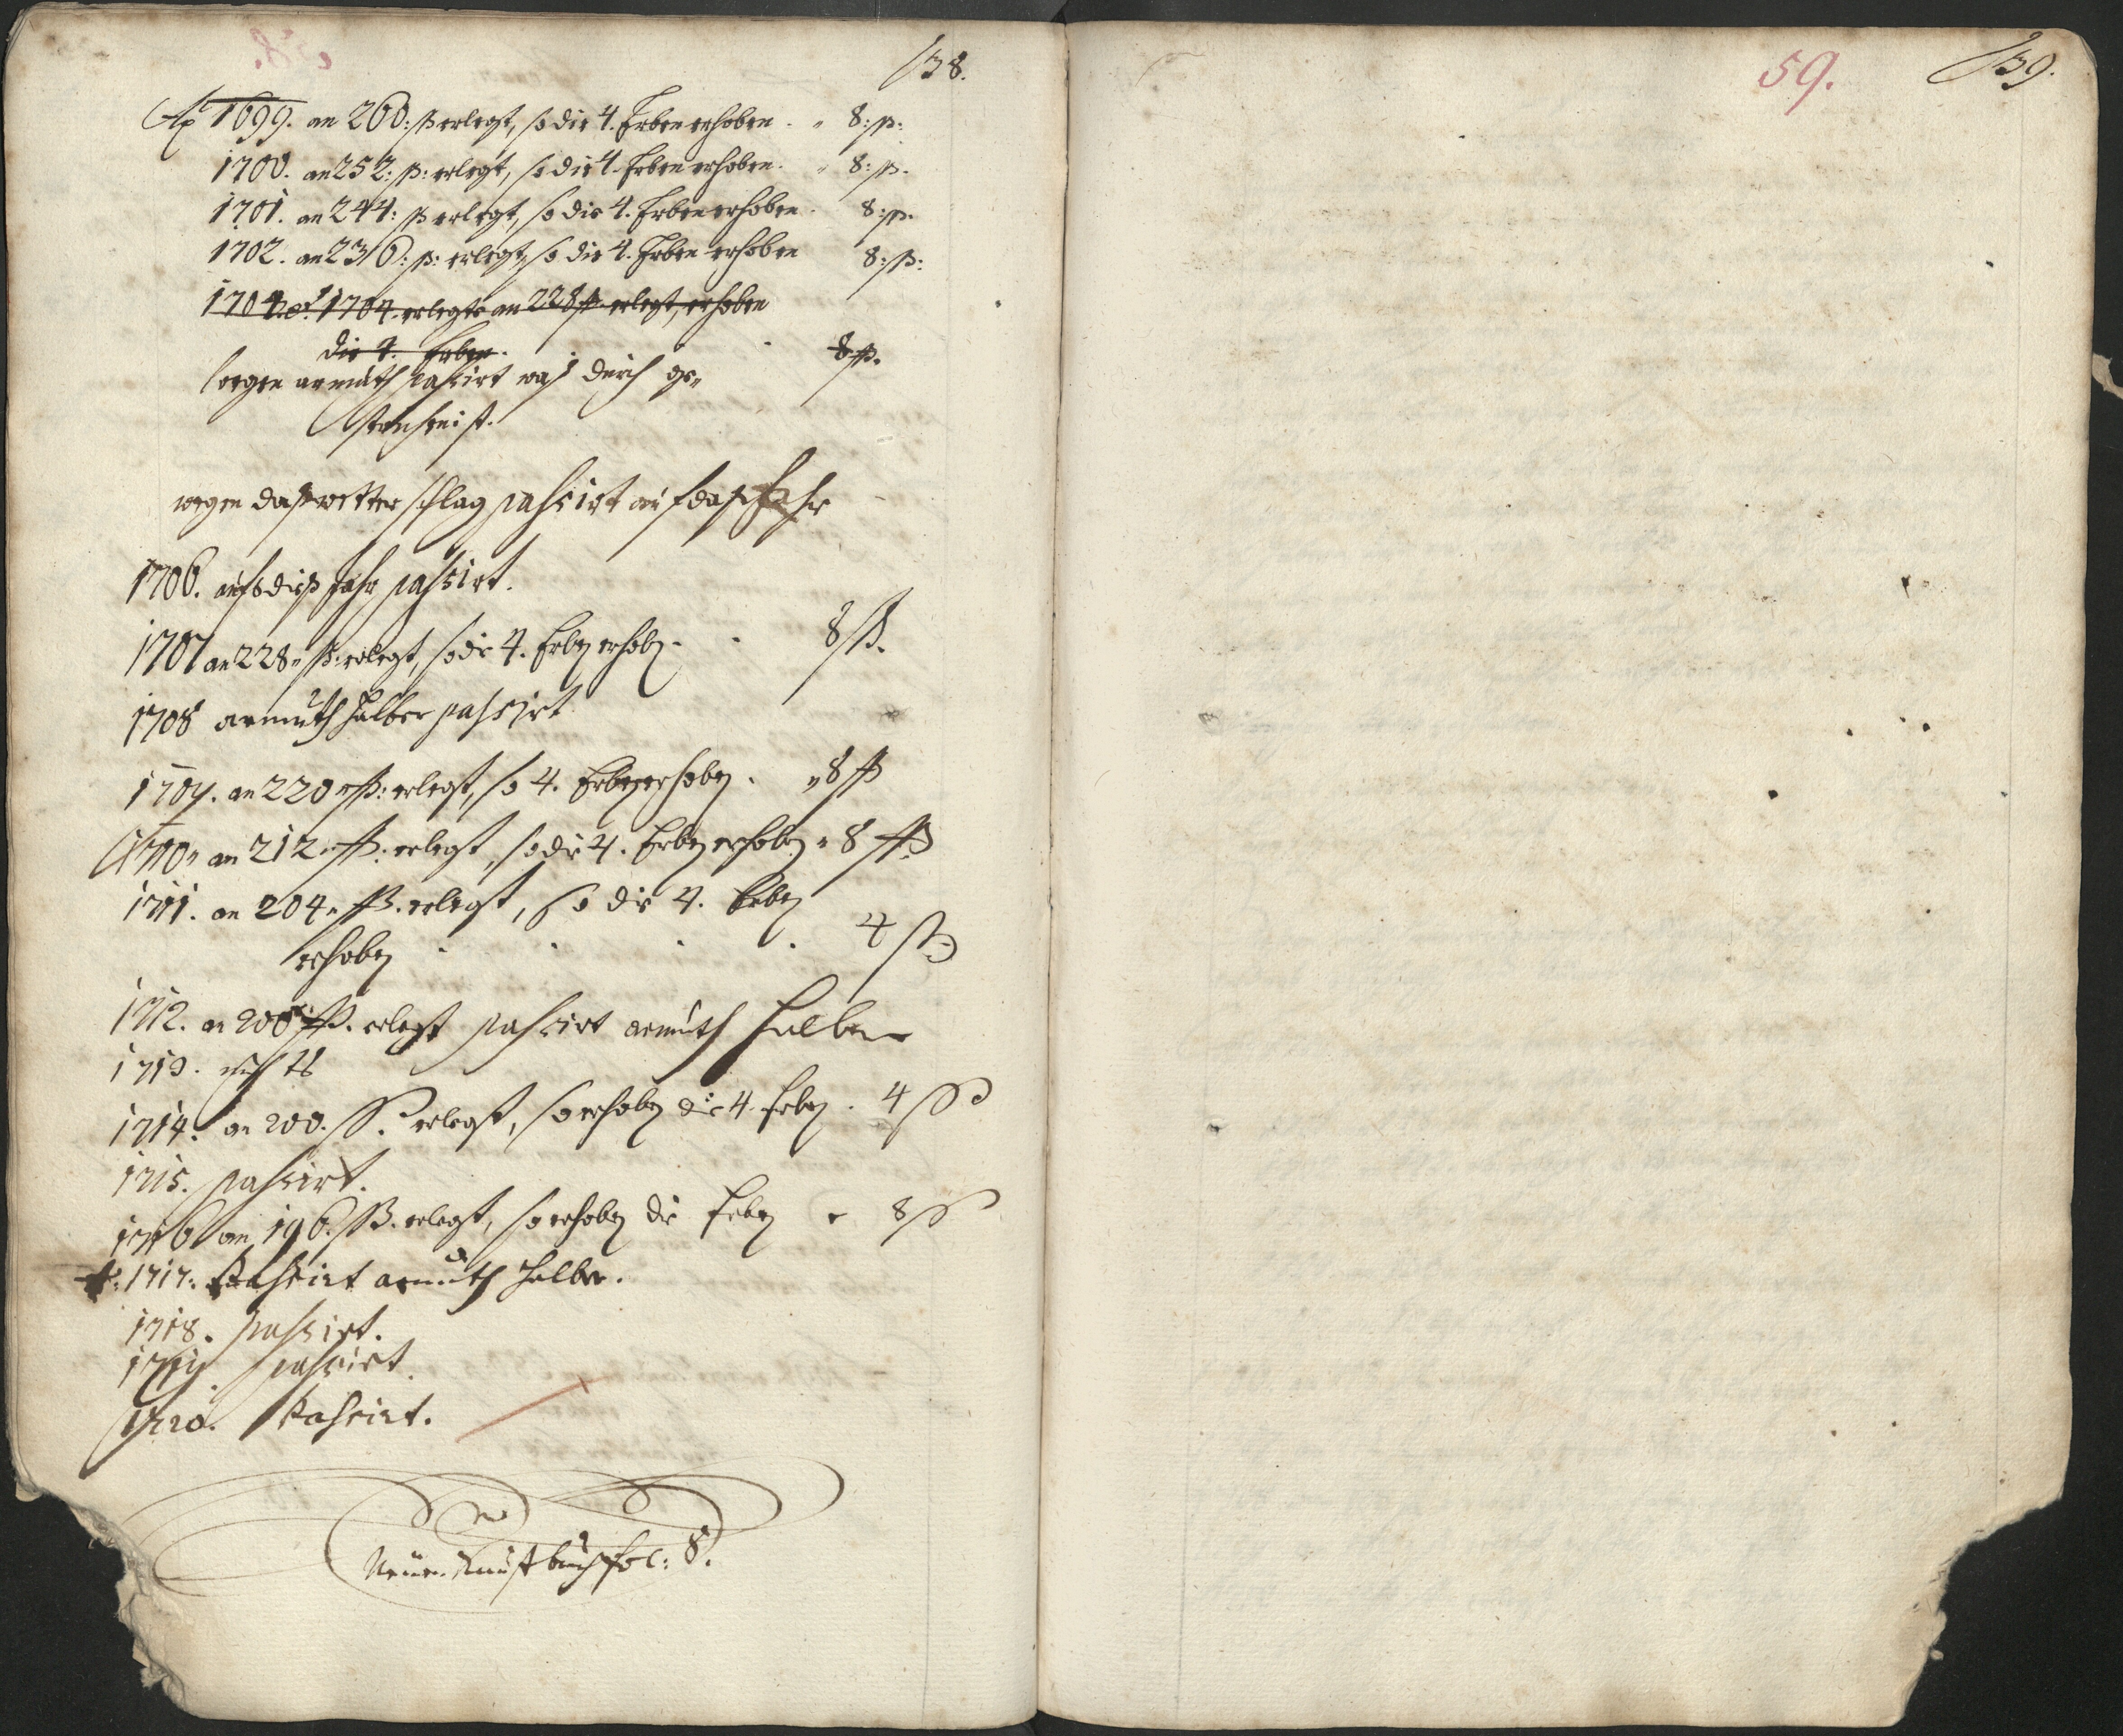 138.
Ao 1699. an 260: ß erlegt, so die 4. Erben erhoben. 8: ß:
1700. an 252: ß: erlegt, so die 4. Erben erhoben. 8: ß.
1701. an 244: ß erlegt, so die 4. Erben erhoben. 8: ß.
1702. an 236: ß: erlegt, so die 4. Erben erhoben 8: ß:
1704 erlegte an 228 ß erlegt, erhoben
die 4. Erben. 8 ß.
wegen armuth passirt was durch ge„
strichen ist.
wegen daß wetter schlag passirt auf daß Jahr
1706. auf diß Jahr passirt.
1707 an 228„ ß: erlegt, so die 4. Erben erhoben. 8 ß.
1708 armuth halber passirt
1709. an 220„ ß: erlegt, so 4. Erben erhoben. „ 8 ß
1710„ an 212„ ß. erlegt, so die 4. Erben erhoben „ 8 ß
1711. an 204„ ß. erlegt, so die 4. Erben
erhoben . . . . 4 ß
1712. an 200 ß. erlegt passirt armuth halber
1713. nichts
1714. an 200. ß. erlegt, so erhoben die 4. Erben. 4 ß
1715. passirt.
1716 an 196. ß. erlegt, so erhoben die Erben 8 ß
1717: Passirt armuth halber.
1718. passirt.
1719. passirt.
1720. Passirt.
Neuen Kauft buch fol: 8.
59.
139.